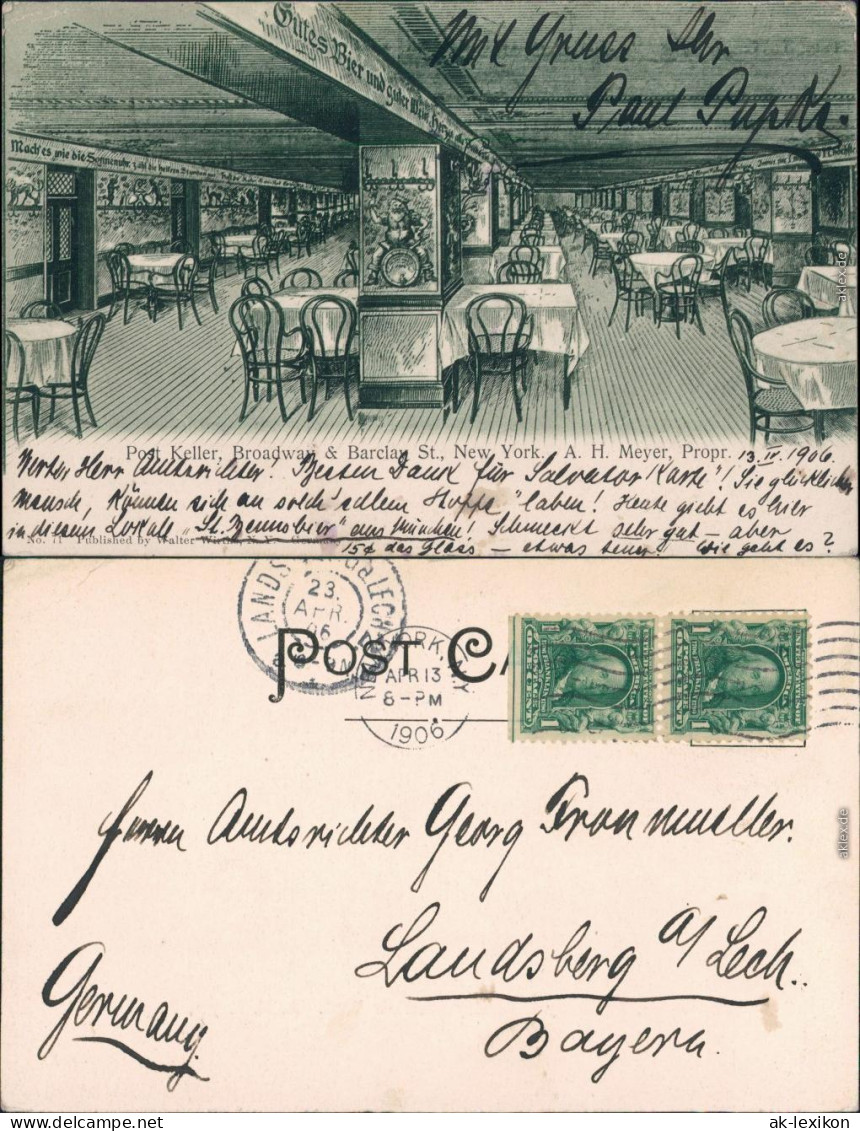 Gutes Bier und guter Wein
Mit Gruss Ihr
Paul
Mach' es wie die Sonnenuhr, zähl die heitern Stunden nur
Post Keller, Broadway & Barclay St., New York. A. H. Meyer, Propr. 13. IV. 1906.
Werter Herr Amtsrichter! Besten Dank für "Salvator Karte"! Sie glücklicher
Mensch, können sich an solch' edlem Stoffe laben! Heute giebt es hier
in diesem Lokale "St. Bennobier" aus München! Schmeckt sehr gut – aber
No. 71 Published by Walter Wirths, N. Y. German
15¢ das Glass – etwas teuer. Wie geht es?
LANDS LECH
23.
APR.
06
POST CA
NEW YORK, N.Y.
APR 13
8-PM
1906
Herrn Amtsrichter Georg Fronmueller.
Landsberg a/ Lech.
Germany.
Bayern.
aklex.de
aklex.de
www.ansichtskarten-lexikon.de
ak-lexikon